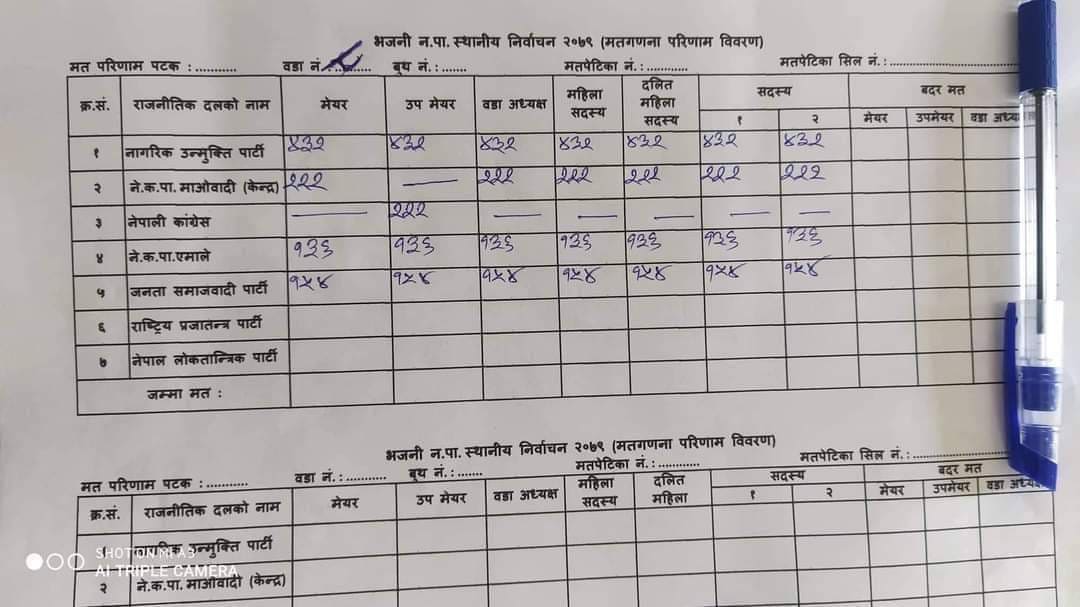 भजनी न.पा. स्थानीय निर्वाचन २०७९ (मतगणना परिणाम विवरण)
मत परिणाम पटक : ........... वडा नं. ........... बुथ नं.: ....... मतपेटिका नं.: ........... मतपेटिका सिल नं.: ...........................
क्र.सं. राजनीतिक दलको नाम मेयर उप मेयर वडा अध्यक्ष महिला सदस्य दलित महिला सदस्य सदस्य बदर मत
१ २ मेयर उपमेयर वडा
१ नागरिक उन्मुक्ति पार्टी ४३२ ४३२ ४३२ ४३२ ४३२ ४३२ ४३२
२ ने.क.पा. माओवादी (केन्द्र) २२२ — २२२ २२२ २२२ २२२ २२२
३ नेपाली कांग्रेस — २२२ — — — — —
४ ने.क.पा.एमाले १३६ १३६ १३६ १३६ १३६ १३६ १३६
५ जनता समाजवादी पार्टी १५४ १५४ १५४ १५४ १५४ १५४ १५४
६ राष्ट्रिय प्रजातन्त्र पार्टी
७ नेपाल लोकतान्त्रिक पार्टी
जम्मा मत :
भजनी न.पा. स्थानीय निर्वाचन २०७९ (मतगणना परिणाम विवरण)
मत परिणाम पटक : ........... वडा नं.: ........... बुथ नं.: ....... मतपेटिका नं.: ........... मतपेटिका सिल नं.: ...........................
क्र.सं. राजनीतिक दलको नाम मेयर उप मेयर वडा अध्यक्ष महिला सदस्य दलित महिला सदस्य बदर मत
१ २ मेयर उपमेयर वडा
उन्मुक्ति पार्टी
२ ने.क.पा. माओवादी (केन्द्र)
SHOT ON MI A3
AI TRIPLE CAMERA